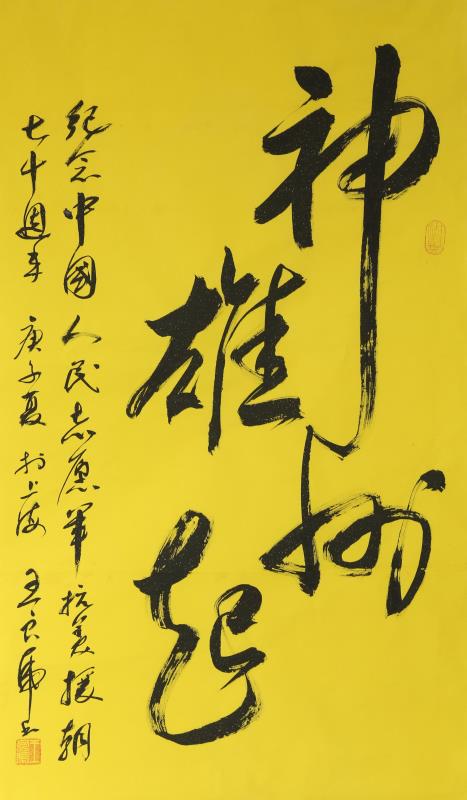 神州
雄起
纪念中國人民志愿軍抗美援朝
七十週年 庚子夏 於上海 王良虎书